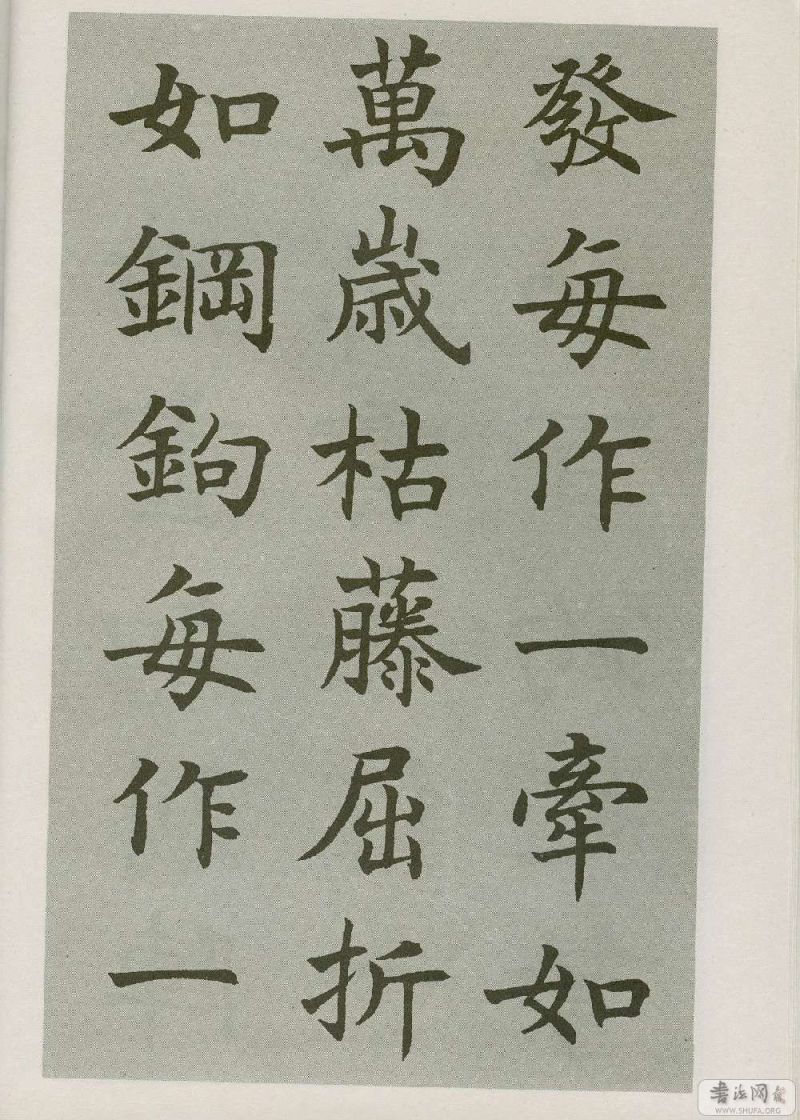 發每作一牽如
萬歲枯藤屈折
如鋼鉤每作一
书法网
WWW.SHUFA.ORG